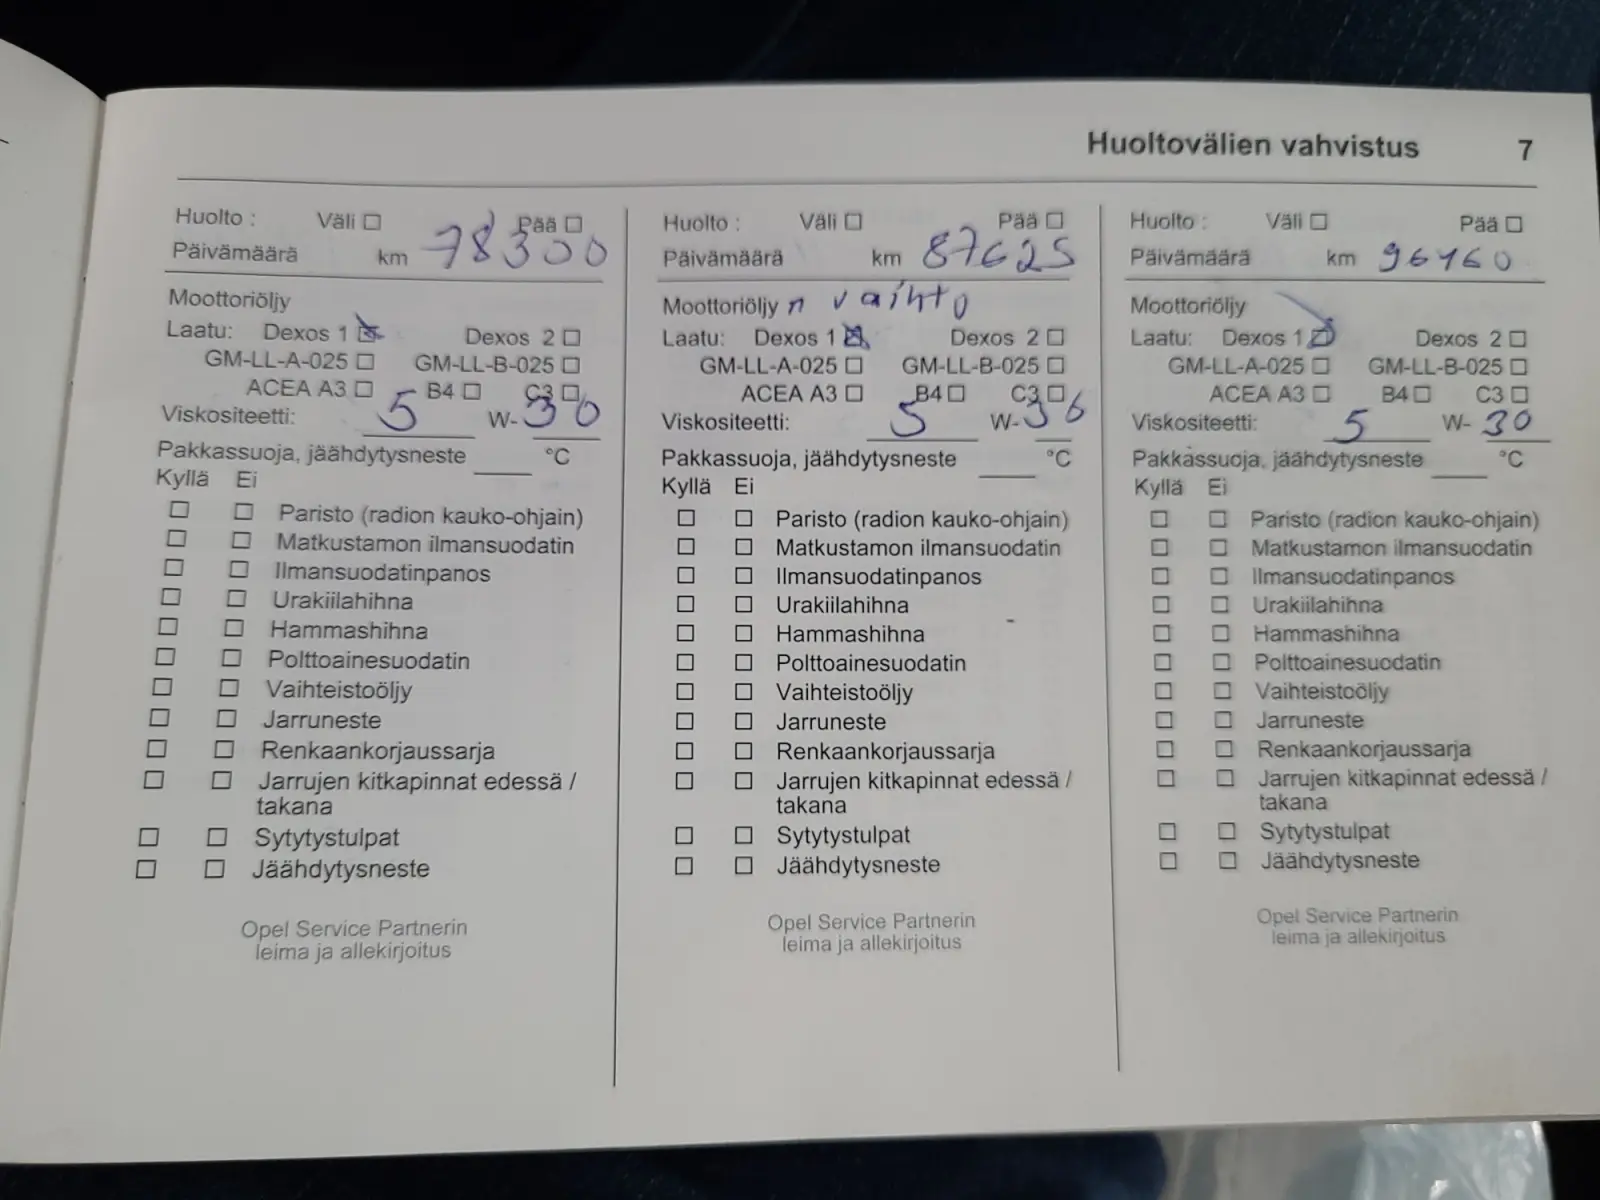 Huoltovälien vahvistus 7
Huolto : Väli ☐ Pää ☐
Päivämäärä km 78300
Moottoriöljy
Laatu: Dexos 1 ☒ Dexos 2 ☐
GM-LL-A-025 ☐ GM-LL-B-025 ☐
ACEA A3 ☐ B4 ☐ C3 ☐
Viskositeetti: 5 W- 30
Pakkassuoja, jäähdytysneste °C
Kyllä Ei
☐ ☐ Paristo (radion kauko-ohjain)
☐ ☐ Matkustamon ilmansuodatin
☐ ☐ Ilmansuodatinpanos
☐ ☐ Urakiilahihna
☐ ☐ Hammashihna
☐ ☐ Polttoainesuodatin
☐ ☐ Vaihteistoöljy
☐ ☐ Jarruneste
☐ ☐ Renkaankorjaussarja
☐ ☐ Jarrujen kitkapinnat edessä /
takana
☐ ☐ Sytytystulpat
☐ ☐ Jäähdytysneste
Opel Service Partnerin
leima ja allekirjoitus
Huolto : Väli ☐ Pää ☐
Päivämäärä km 87625
Moottoriöljy n vaihto
Laatu: Dexos 1 ☒ Dexos 2 ☐
GM-LL-A-025 ☐ GM-LL-B-025 ☐
ACEA A3 ☐ B4 ☐ C3 ☐
Viskositeetti: 5 W- 30
Pakkassuoja, jäähdytysneste °C
Kyllä Ei
☐ ☐ Paristo (radion kauko-ohjain)
☐ ☐ Matkustamon ilmansuodatin
☐ ☐ Ilmansuodatinpanos
☐ ☐ Urakiilahihna
☐ ☐ Hammashihna
☐ ☐ Polttoainesuodatin
☐ ☐ Vaihteistoöljy
☐ ☐ Jarruneste
☐ ☐ Renkaankorjaussarja
☐ ☐ Jarrujen kitkapinnat edessä /
takana
☐ ☐ Sytytystulpat
☐ ☐ Jäähdytysneste
Opel Service Partnerin
leima ja allekirjoitus
Huolto : Väli ☐ Pää ☐
Päivämäärä km 96160
Moottoriöljy
Laatu: Dexos 1 ☒ Dexos 2 ☐
GM-LL-A-025 ☐ GM-LL-B-025 ☐
ACEA A3 ☐ B4 ☐ C3 ☐
Viskositeetti: 5 W- 30
Pakkassuoja, jäähdytysneste °C
Kyllä Ei
☐ ☐ Paristo (radion kauko-ohjain)
☐ ☐ Matkustamon ilmansuodatin
☐ ☐ Ilmansuodatinpanos
☐ ☐ Urakiilahihna
☐ ☐ Hammashihna
☐ ☐ Polttoainesuodatin
☐ ☐ Vaihteistoöljy
☐ ☐ Jarruneste
☐ ☐ Renkaankorjaussarja
☐ ☐ Jarrujen kitkapinnat edessä /
takana
☐ ☐ Sytytystulpat
☐ ☐ Jäähdytysneste
Opel Service Partnerin
leima ja allekirjoitus